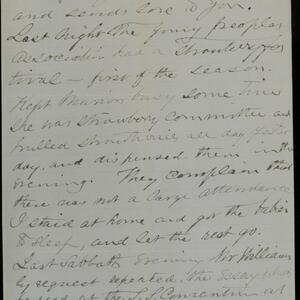 and sends love to you.
Last night the young peoples
Association had a Strawberry fes
tival — first of the season.
Kept Marion busy some time
she was strawberry committee and
hulled strawberries all day yester
day, and dispensed them in the
evening. They complain that
there was not a large attendance
I staid at home and got the babies
to sleep, and let the rest go.
Last Sabbath evening Mr Williams
by request repeated, the Essay which
he read at the S.S. Convention at